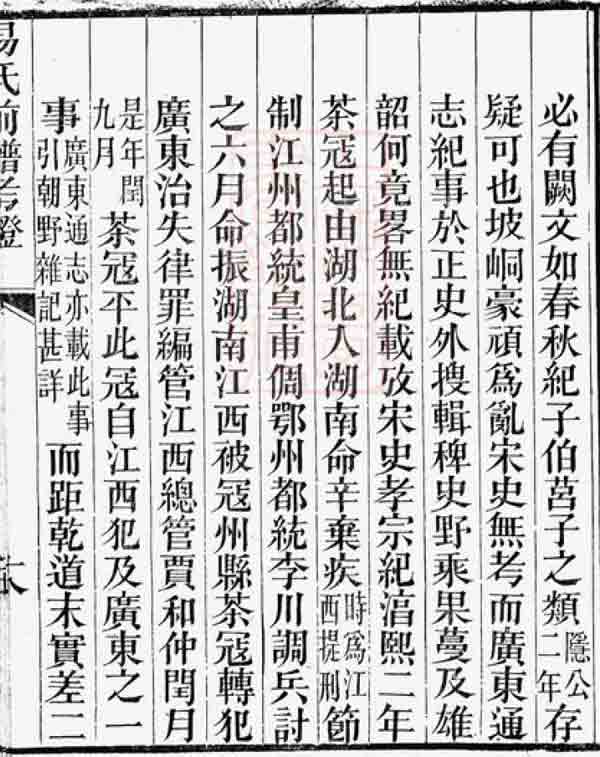 必有闕文如春秋紀子伯莒子之類隱公二年存
疑可也坡峒豪頑爲亂宋史無考而廣東通
志紀事於正史外搜輯稗史野乘果蔓及雄
韶何竟畧無紀載攷宋史孝宗紀湻熙二年
茶寇起由湖北入湖南命辛棄疾時爲江西提刑節
制江州都統皇甫倜鄂州都統李川調兵討
之六月命振湖南江西被寇州縣茶寇轉犯
廣東治失律罪編管江西總管賈和仲閏月
是年閏九月茶寇平此寇自江西犯及廣東之一
事廣東通志亦載此事引朝野雜記甚詳而距乾道末實差二
氏前譜考證